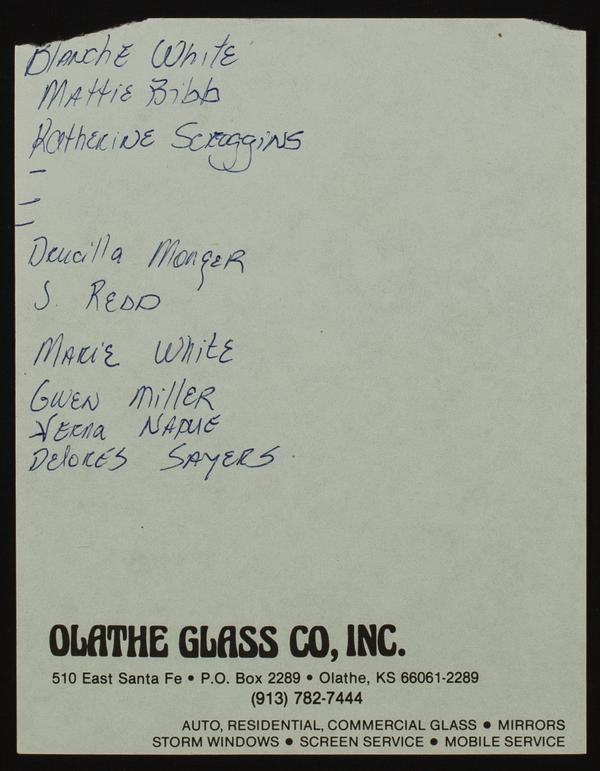 Blanche White
Mattie Bibb
Katherine Scroggins
-
-
-
Drucilla Monger
S. Redd
Marie White
Gwen Miller
Verna
Delores Sayers
OLATHE GLASS CO, INC.
510 East Santa Fe • P.O. Box 2289 • Olathe, KS 66061-2289
(913) 782-7444
AUTO, RESIDENTIAL, COMMERCIAL GLASS ● MIRRORS
STORM WINDOWS ● SCREEN SERVICE ● MOBILE SERVICE